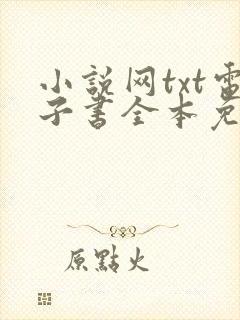 小説网txt電
子書全本免
原點火